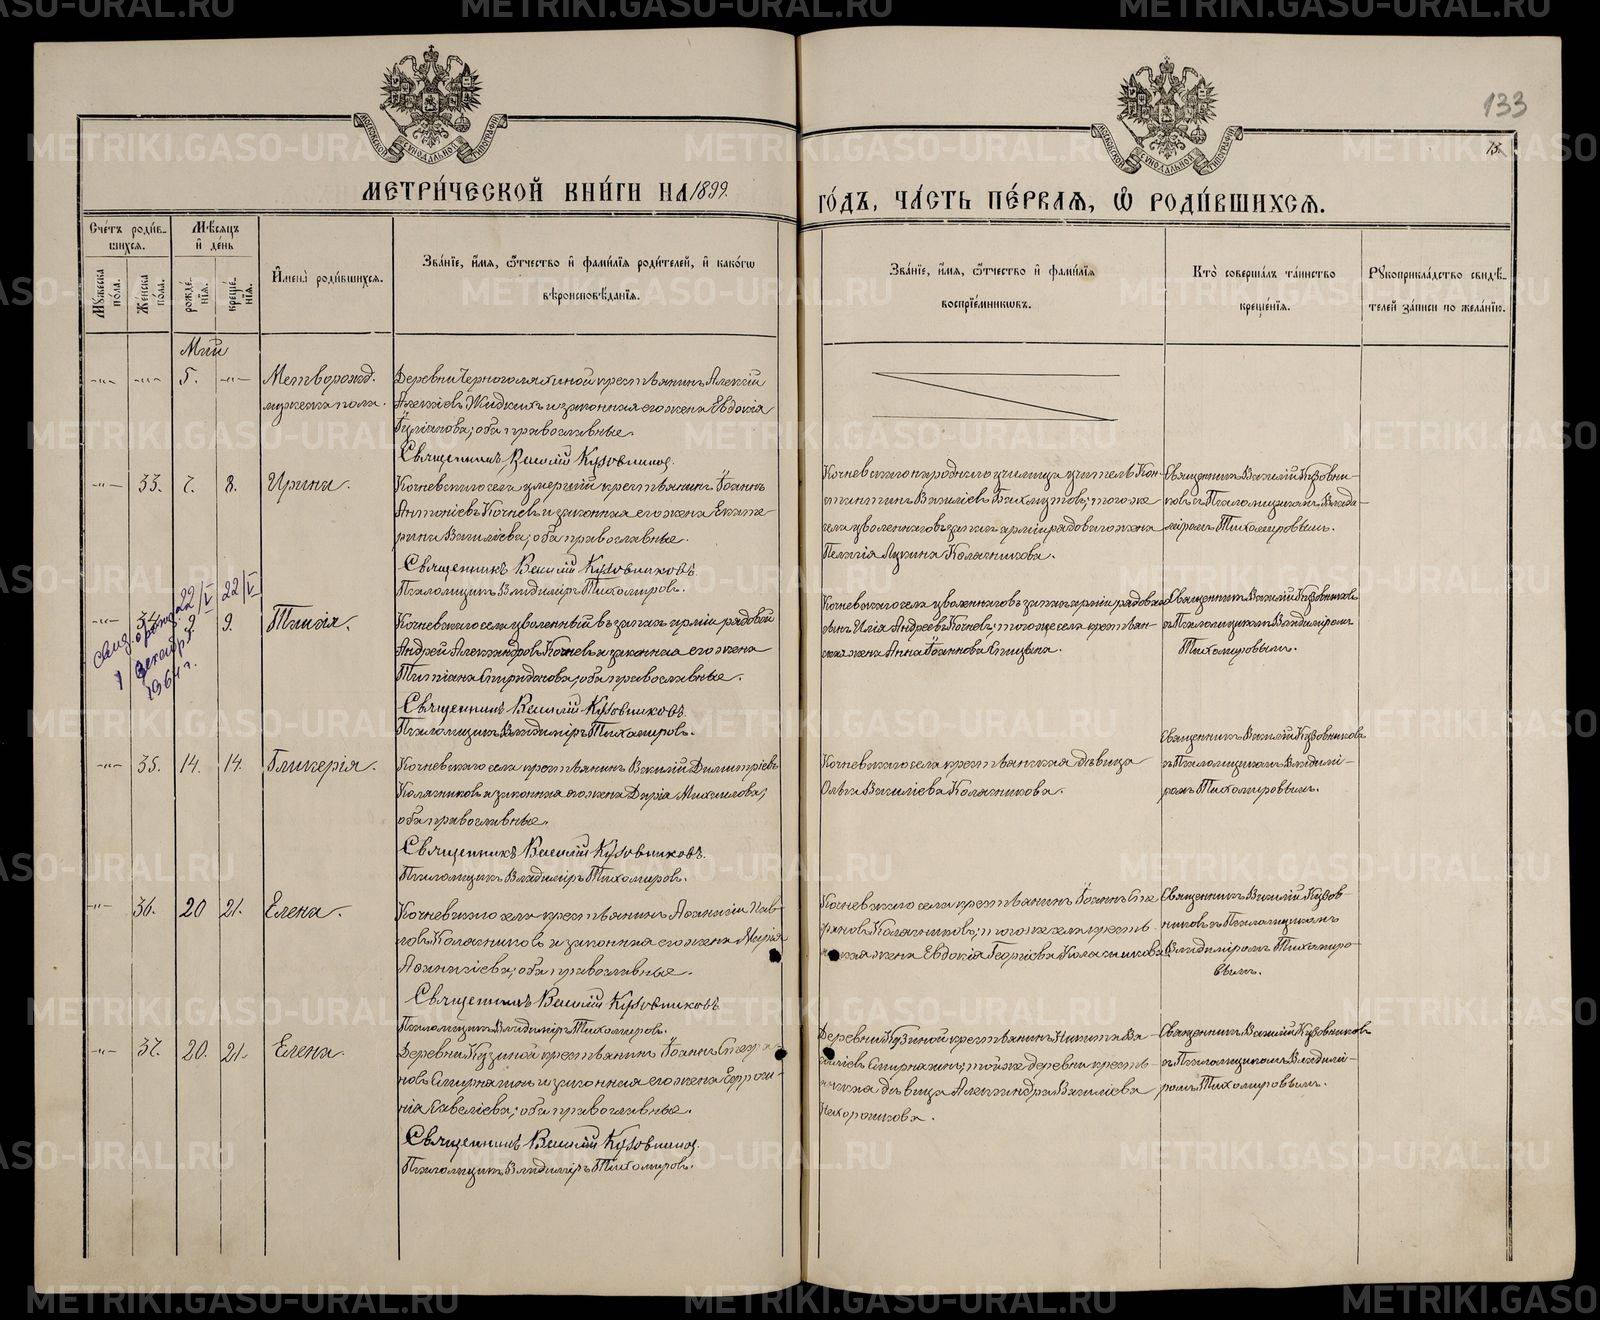 133
13.
МЕТРИ́ЧЕСКОЙ КНИ́ГИ НА 1899 ГО́ДЪ, ЧА́СТЬ ПЕ́РВАЯ, Ѡ РОДИ́ВШИХСЯ.
Сче́тъ роди́вшихся.
Мѣ́сяцъ и де́нь
Мꙋ́жеска по́ла.
Же́нска по́ла.
рожде́нїя.
креще́нїя.
И́мена̀ роди́вшихся.
Зва́нїе, и́мя, ѻ҆́тчество и фами́лїя роди́телей, и како́гѡ
вѣроисповѣ́данїя.
Зва́нїе, и́мя, ѻ҆́тчество и фами́лїя
воспрїе́мникѡвъ.
Кто̀ соверша́лъ та́инство
креще́нїя.
Рꙋкоприкла́дство свидѣ́-
телей за́писи по жела́нїю.
Май
-"- -"- 5. -"- Мертворожд.
мужска пола.
Деревни Черноголяхиной крестьянинъ Алексій
Алексіевъ Жидкихъ и законная его жена Евдокія
оба православные.
Священникъ Василій Кузовниковъ.
-"- 33. 7. 8. Ирина.
Кочневскаго села умершій крестьянинъ Іоаннъ
Антоніевъ Кочневъ и законная его жена Екате-
рина Василіева; оба православные.
Священникъ Василій Кузовниковъ
Псаломщикъ Владиміръ Тихомировъ.
Кочневскаго народнаго училища учитель Кон-
стантинъ Василіевъ Бахмутовъ; того же
села уволеннаго въ запасъ арміи рядоваго жена
Пелагія Лукина Колясникова.
Священникъ Василій Кузовни-
ковъ съ Псаломщикомъ Влади-
міромъ Тихомировымъ.
22/V 22/V
-"- 34. 9. 9. Таисія.
1 декабря
1964 г.
Кочневскаго села уволенный въ запасъ арміи рядовой
Андрей Александровъ Кочневъ и законная его жена
Татіана Спиридонова; оба православные.
Священникъ Василій Кузовниковъ
Псаломщикъ Владиміръ Тихомировъ.
Кочневскаго села уволеннаго въ запасъ арміи рядоваго
сынъ Илія Андреевъ Кочневъ; того же села крестьян-
ская жена Анна Іоаннова Спицына.
Священникъ Василій Кузовниковъ
съ Псаломщикомъ Владиміромъ
Тихомировымъ.
-"- 35. 14. 14. Гликерія.
Кочневскаго села крестьянинъ Василій Димитріевъ
Колясниковъ и законная его жена Дарія Михаилова;
оба православные.
Священникъ Василій Кузовниковъ.
Псаломщикъ Владиміръ Тихомировъ.
Кочневскаго села крестьянская дѣвица
Ольга Василіева Колясникова.
Священникъ Василій Кузовниковъ
съ Псаломщикомъ Владимі-
ромъ Тихомировымъ.
-"- 36. 20 21. Елена.
Кочневскаго села крестьянинъ Аѳанасій Пав-
ловъ Колясниковъ и законная его жена Марія
оба православные.
Священникъ Василій Кузовниковъ
Псаломщикъ Владиміръ Тихомировъ.
Кочневскаго села крестьянинъ Іоаннъ Сте-
фановъ Колясниковъ; того же села кресть-
янская жена Евдокія Георгіева Колясникова.
Священникъ Василій Кузов-
никовъ съ Псаломщикомъ
Владиміромъ Тихомиро-
вымъ.
-"- 37. 20. 21. Елена.
Деревни Кузиной крестьянинъ Іоаннъ Стефа-
новъ и законная его жена Евфроси-
нія Савеліева; оба православные.
Священникъ Василій Кузовниковъ.
Псаломщикъ Владиміръ Тихомировъ.
Деревни Кузиной крестьянинъ Никита Ва-
силіевъ той же деревни кресть-
янская дѣвица Александра Василіева
Нехорошкова.
Священникъ Василій Кузовниковъ
съ Псаломщикомъ Владимі-
ромъ Тихомировымъ.
METRIKI.GASO-URAL.RU